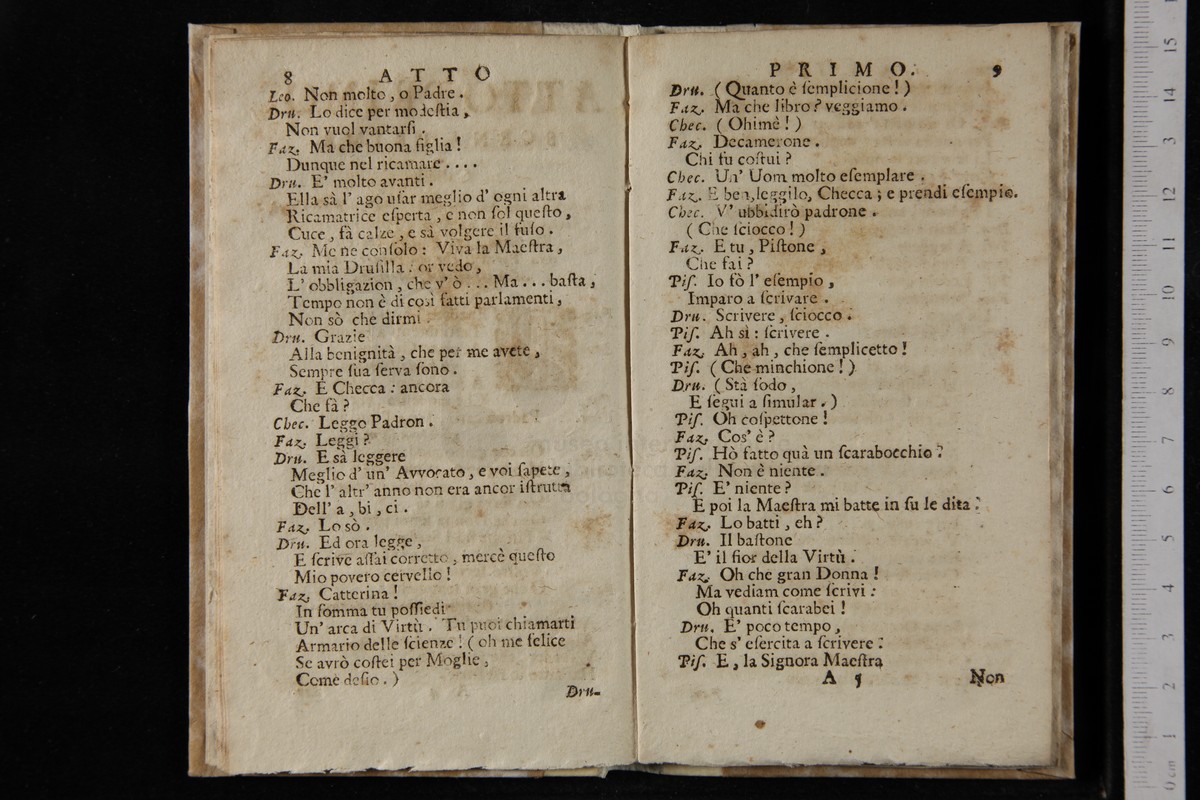 8 ATTO
Leo. Non molto, o Padre.
Dru. Lo dice per modeſtia,
Non vuol vantarſi.
Faz. Ma che buona figlia!
Dunque nel ricamare....
Dru. E' molto avanti.
Ella sà l' ago uſar meglio d' ogni altra
Ricamatrice eſperta, e non ſol queſto,
Cuce, fà calze, e sà volgere il fuſo.
Faz. Me ne conſolo: Viva la Maeſtra,
La mia Druſilla: or vedo,
L' obbligazion, che v' ò... Ma... baſta,
Tempo non è di così fatti parlamenti,
Non sò che dirmi.
Dru. Grazie
Alla benignità, che per me avete,
Sempre ſua ſerva ſono.
Faz. E Checca: ancora
Che fà?
Chec. Leggo Padron.
Faz. Leggi?
Dru. E sà leggere
Meglio d' un' Avvocato, e voi ſapete,
Che l' altr' anno non era ancor iſtrutta
Dell' a, bi, ci.
Faz. Lo sò.
Dru. Ed ora legge,
E ſcrive aſſai corretto, mercè queſto
Mio povero cervello!
Faz. Catterina!
In ſomma tu poſſiedi
Un' arca di Virtù. Tu puoi chiamarti
Armario delle ſcienze! (oh me felice
Se avrò coſtei per Moglie,
Come deſio.)
Dru-
PRIMO. 9
Dru. (Quanto è ſemplicione!)
Faz. Ma che libro? veggiamo.
Chec. (Ohimè!)
Faz. Decamerone.
Chi fu coſtui?
Chec. Un' Uom molto eſemplare.
Faz. E ben, leggilo, Checca; e prendi eſempio.
Chec. V' ubbidirò padrone.
(Che ſciocco!)
Faz. E tu, Piſtone,
Che fai?
Piſ. Io fò l' eſempio,
Imparo a ſcrivare.
Dru. Scrivere, ſciocco.
Piſ. Ah sì: ſcrivere.
Faz. Ah, ah, che ſemplicetto!
Piſ. (Che minchione!)
Dru. (Stà ſodo,
E ſegui a ſimular.)
Piſ. Oh coſpettone!
Faz. Cos' è?
Piſ. Hò fatto quà un ſcarabocchio!
Faz. Non è niente.
Piſ. E' niente?
E poi la Maeſtra mi batte in ſu le dita!
Faz. Lo batti, eh?
Dru. Il baſtone
E' il fior della Virtù.
Faz. Oh che gran Donna!
Ma vediam come ſcrivi:
Oh quanti ſcarabei!
Dru. E' poco tempo,
Che s' eſercita a ſcrivere!
Piſ. E, la Signora Maeſtra
A 5 Non
0 cm 1 2 3 4 5 6 7 8 9 10 11 12 13 14 15